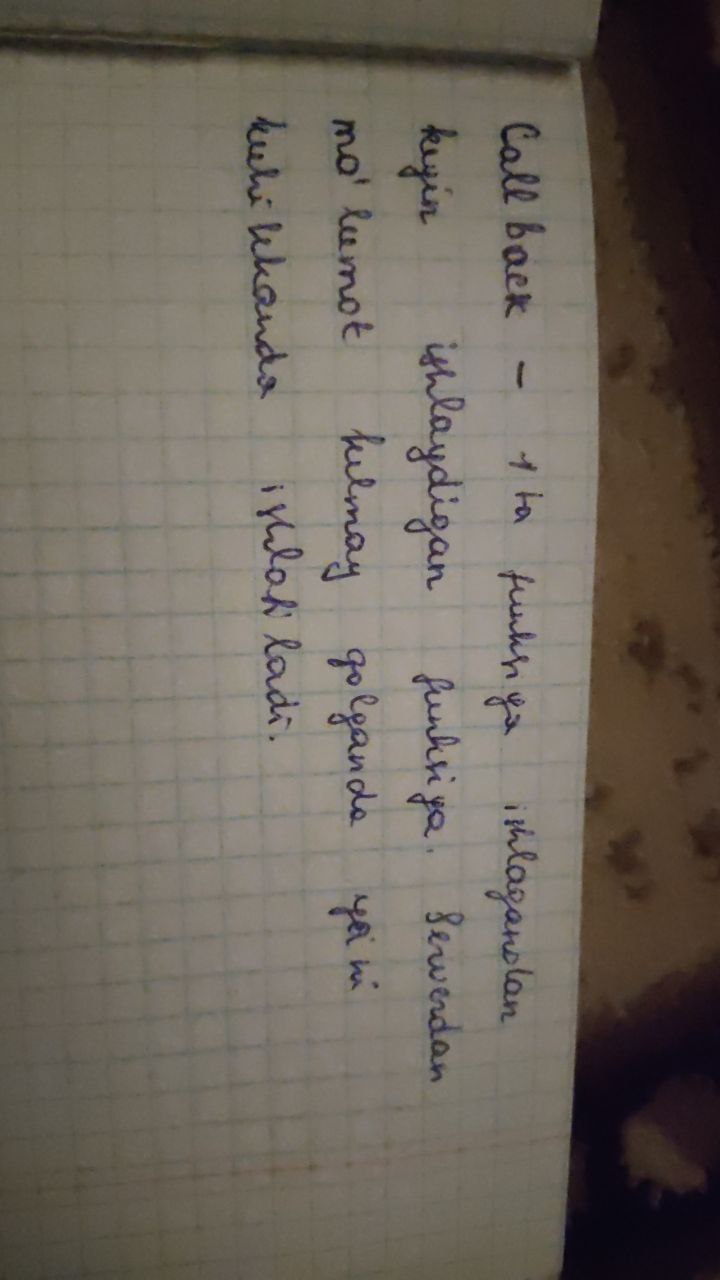 Callback - 1 ta funksiya ishlagandan
keyin ishlaydigan funksiya. Serverdan
ma'lumot kelmay qolganda ya'ni
kechikkanda ishlatiladi.